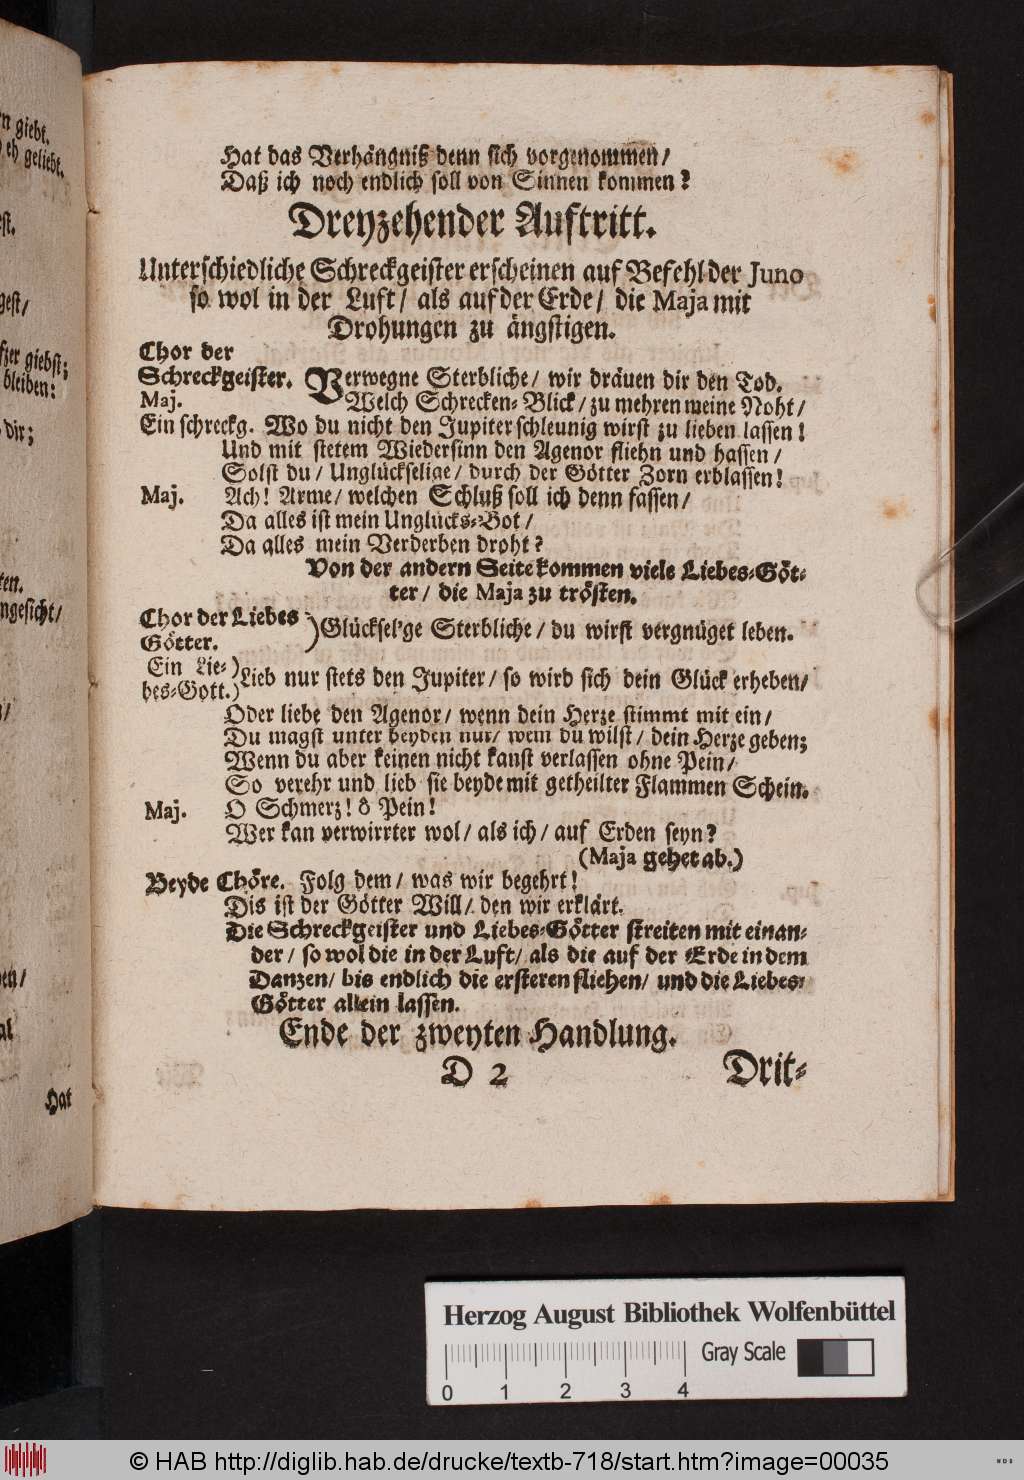 n giebt.
eh geliebt.
st.
gest/
fzer giebst;
bleiben:
dir;
ten.
ngesicht/
n/
en/
al
Hat
Hat das Verhängniß denn sich vorgenommen/
Daß ich noch endlich soll von Sinnen kommen?
Dreyzehender Auftritt.
Unterschiedliche Schreckgeister erscheinen auf Befehl der Juno
so wol in der Luft/ als auf der Erde/ die Maja mit
Drohungen zu ängstigen.
Chor der
Schreckgeister. Verwegne Sterbliche/ wir dräuen dir den Tod.
Maj. Welch Schrecken-Blick/ zu mehren meine Noht/
Ein schreckg. Wo du nicht den Jupiter schleunig wirst zu lieben lassen!
Und mit stetem Wiedersinn den Agenor fliehn und hassen/
Solst du/ Unglückselige/ durch der Götter Zorn erblassen!
Maj. Ach! Arme/ welchen Schluß soll ich denn fassen/
Da alles ist mein Unglücks-Bot/
Da alles mein Verderben droht?
Von der andern Seite kommen viele Liebes-Göt-
ter/ die Maja zu trösten.
Chor der Liebes
Götter. )Glücksel'ge Sterbliche/ du wirst vergnüget leben.
Ein Lie-)
bes-Gott.)Lieb nur stets den Jupiter/ so wird sich dein Glück erheben/
Oder liebe den Agenor/ wenn dein Herze stimmt mit ein/
Du magst unter beyden nur/ wem du wilst/ dein Herze geben;
Wenn du aber keinen nicht kanst verlassen ohne Pein/
So verehr und lieb sie beyde mit getheilter Flammen Schein.
Maj. O Schmerz! ô Pein!
Wer kan verwirrter wol/ als ich/ auf Erden seyn?
(Maja gehet ab.)
Beyde Chöre. Folg dem/ was wir begehrt!
Dis ist der Götter Will/ den wir erklärt.
Die Schreckgeister und Liebes-Götter streiten mit einan-
der/ so wol die in der Luft/ als die auf der Erde in dem
Danzen/ bis endlich die ersteren fliehen/ und die Liebes-
Götter allein lassen.
Ende der zweyten Handlung.
D 2 Drit-
Herzog August Bibliothek Wolfenbüttel
Gray Scale
0 1 2 3 4
© HAB http://diglib.hab.de/drucke/textb-718/start.htm?image=00035